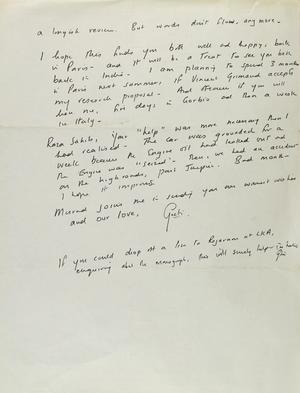 a longish review. But words don't flow, any more.
I hope this finds you both well and happy, back
in Paris - and it will be a treat to see you both
back in India. I am planning to spend 3 months
in Paris next summer, if Vincent Grimaud accepts
my research proposal. And then if you will
have me, five days in Gorbio and then a week
in Italy.
Raza Sahib, Your "help" was more necessary than I
had realised. The car was grounded for a
week because the Engine oil had leaked out and
the Engine was "seized". Then, we had an accident
on the high roads, past Jaipur. Bad month -
I hope it improves.
Murad joins me in sending you our warmest wishes
and our love,
Geeti.
If you could drop a line to Rajaram at LKA,
enquiring about the monograph, this will surely help